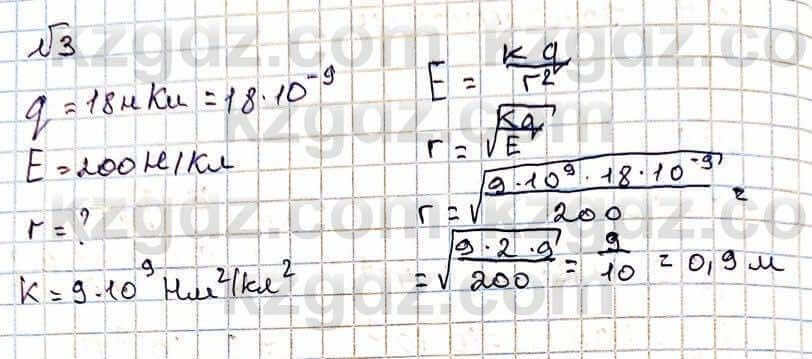 №3
q = 18нКл = 18·10⁻⁹
E = 200Н/Кл
r = ?
K = 9·10⁹ Нм²/Кл²
E = kq/r²
r = √(Kq/E)
r = √(9·10⁹·18·10⁻⁹/200) =
= √(9·2·9/200) = 9/10 = 0,9 м
kzgdz.com